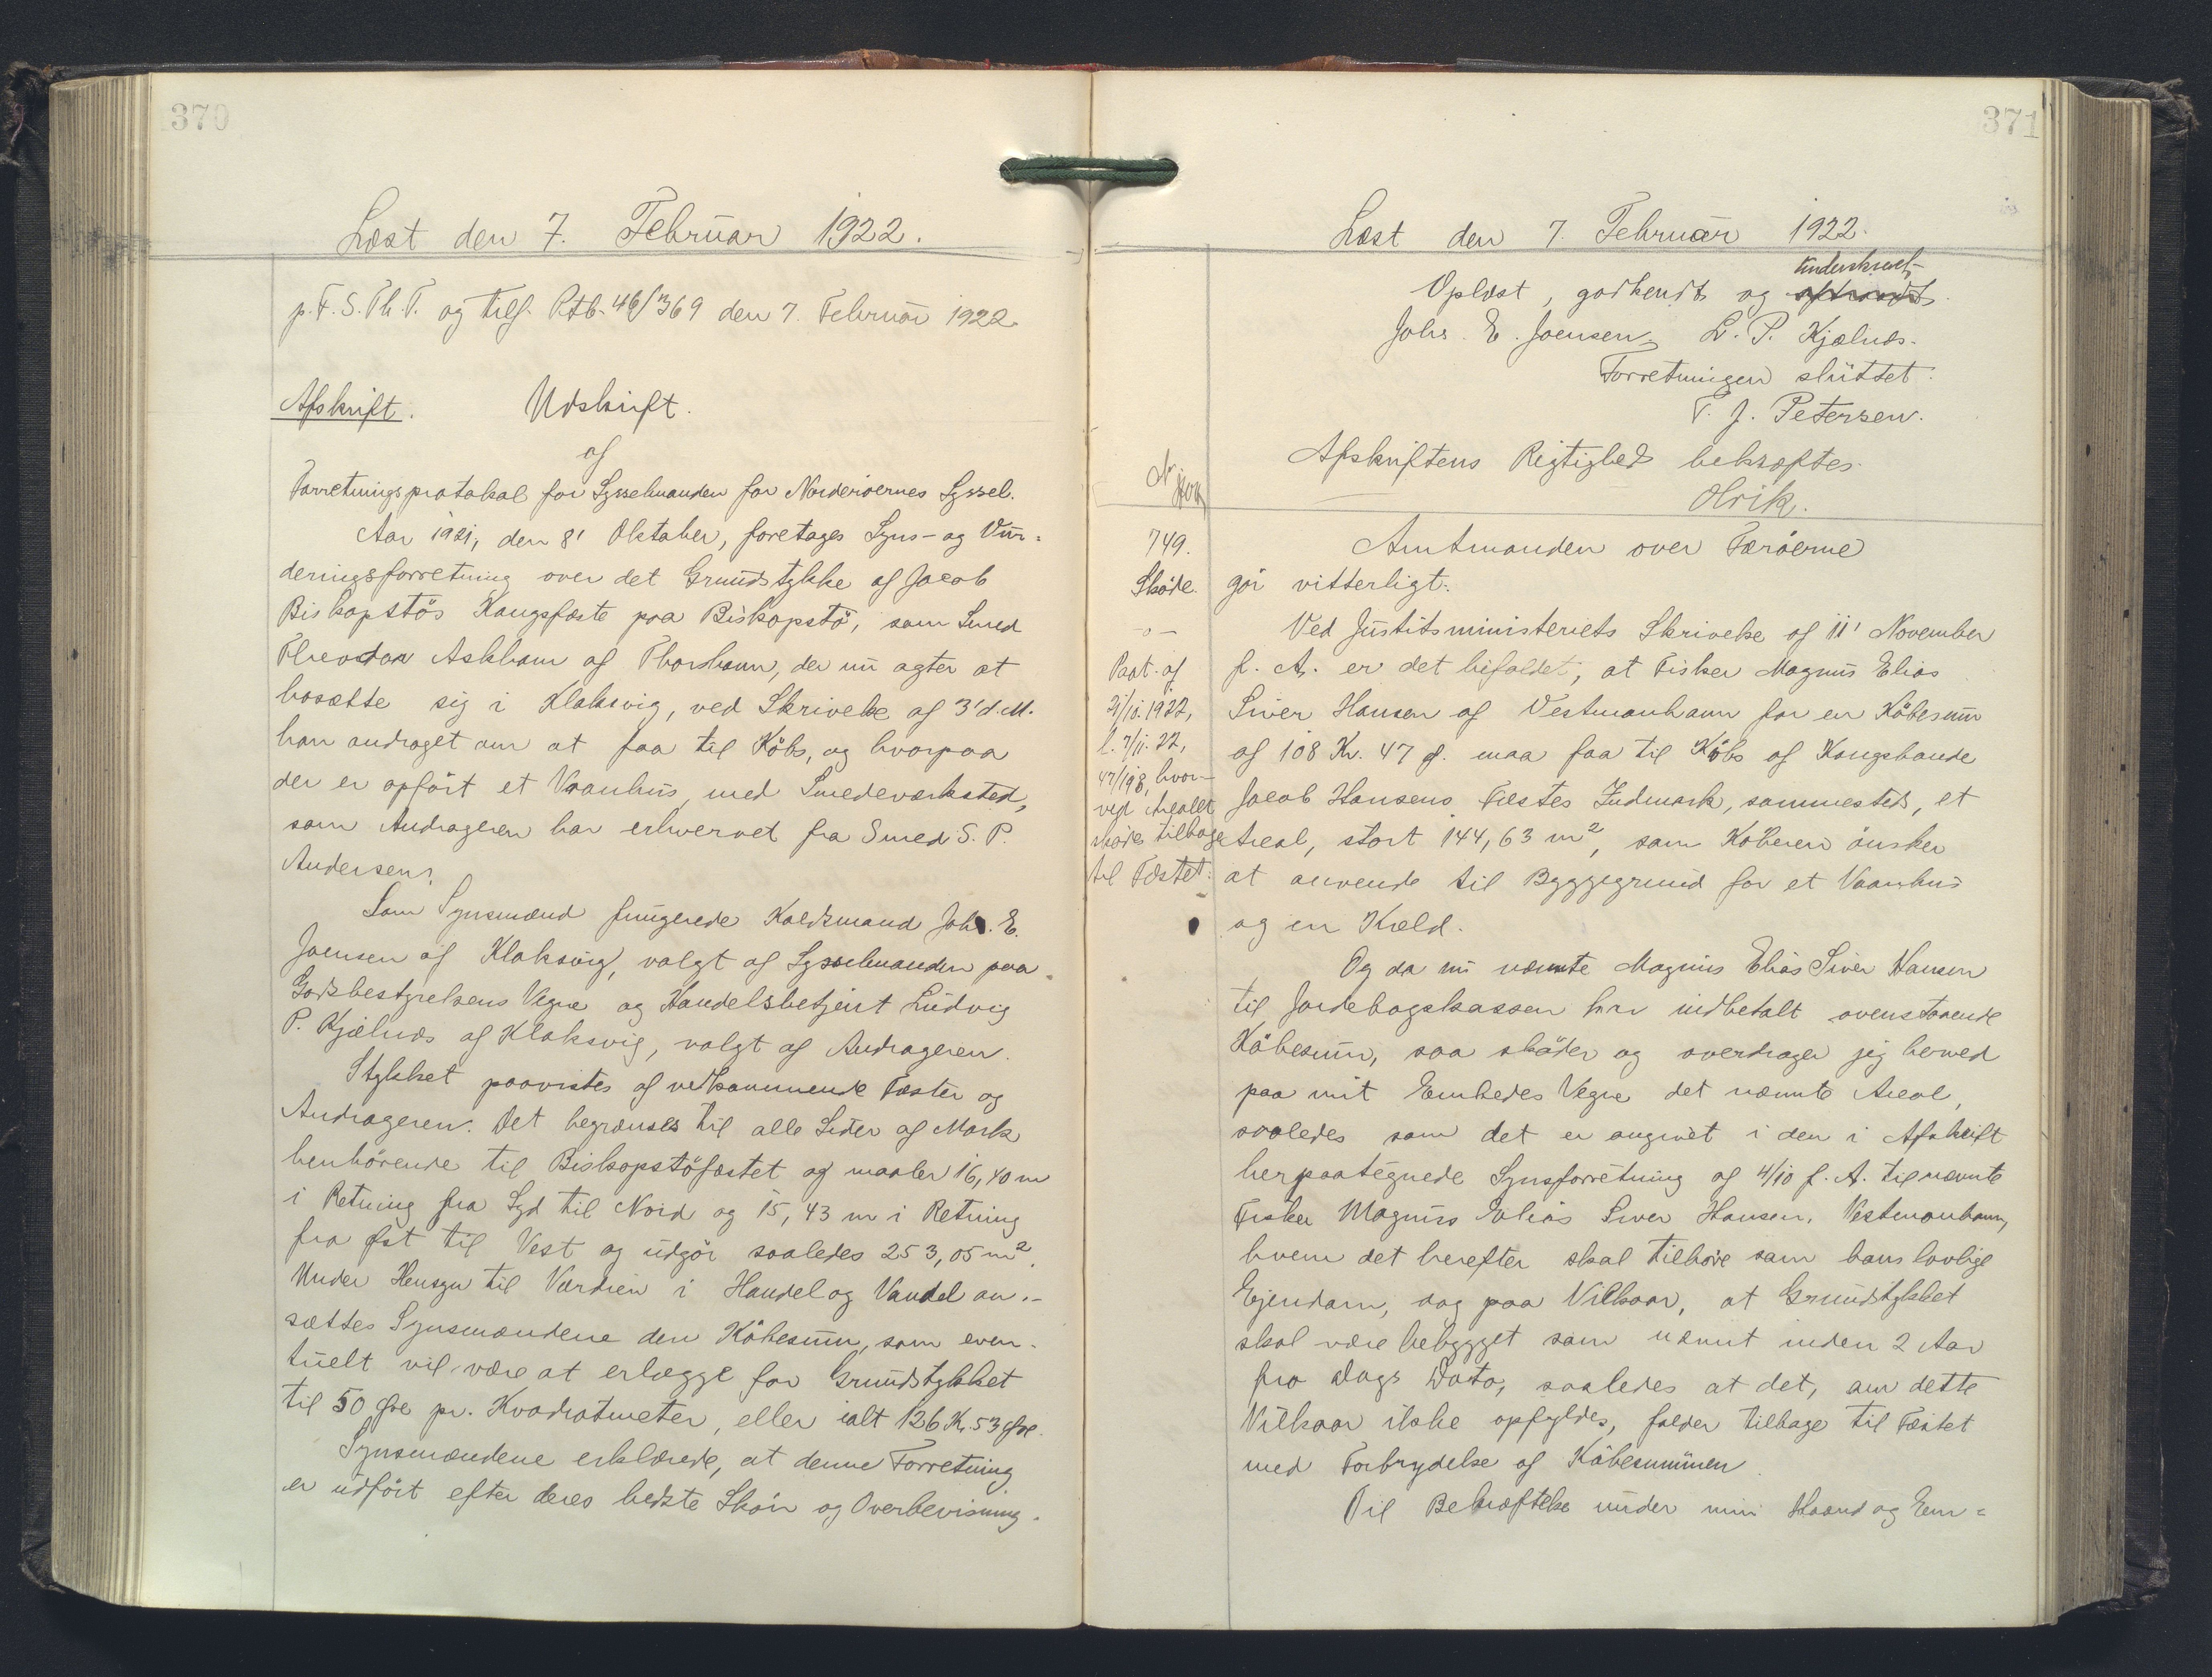 370
Læst den 7. Februar 1922.
p. F. S. Th. P. og tilf. Ptb. 46/369 den 7. Februar 1922.
Afskrift. Udskrift.
af
Forretningsprotokol for Sysselmanden for Norderøernes Syssel.
Aar 1921, den 8' Oktober, foretages Syns- og Vur-
deringsforretning over det Grundstykke af Jacob
Biskopstös Kongsfæste paa Biskopstö, som Smed
Theodor Askham af Thorshavn, der nu agter at
bosætte sig i Klaksvig, ved Skrivelse af 3' d. M.
har andraget om at faa til Köbs, og hvorpaa
der er opfört et Vaanhus med Smedeværksted,
som Andrageren har erhvervet fra Smed S. P.
Andersen.
Som Synsmænd fungerede Kaldsmand Johs. E.
Joensen af Klaksvig, valgt af Sysselmanden paa
Godsbestyrelsens Vegne og Handelsbetjent Ludvig
P. Kjælnæs af Klaksvig, valgt af Andrageren.
Stykket paavistes af vedkommende Fæster og
Andrageren. Det begrænses til alle Sider af Mark
henhörende til Biskopstöfæstet og maaler 16,40 m
i Retning fra Syd til Nord og 15,43 m i Retning
fra Øst til Vest og udgör saaledes 253,05 m².
Under Hensyn til Værdien i Handel og Vandel an-
sættes Synsmændene den Köbesum, som even-
tuelt vil være at erlægge for Grundstykket
til 50 Øre pr. Kvadratmeter, eller ialt 126 Kr. 53 Øre.
Synsmændene erklærede, at denne Forretning
er udfört efter deres bedste Skön og Overbevisning.
371
Læst den 7. Februar 1922.
underskrevet
Oplæst, godkendt og
Johs. E. Joensen, L. P. Kjælnæs.
Forretningen sluttet.
P. J. Petersen.
Afskriftens Rigtighed bekræftes.
Olrik.
749.
Sköde.
-o-
Paat. af
21/10. 1922,
l. 7/11. 22,
47/198, hvor-
ved Arealet
sködes tilbage
til Fæstet.
Amtmanden over Færöerne
gör vitterligt:
Ved Justitsministeriets Skrivelse af 11' November
f. A. er det bifaldet, at Fisker Magnus Elias
Siver Hansen af Vestmanhavn for en Köbesum
af 108 Kr. 47 Ø. maa faa til Köbs af Kongsbonde
Jacob Hansens Fæstes Indmark, sammesteds, et
Areal, stort 144,63 m², som Köberen önsker
at anvende til Byggegrund for et Vaanhus
og en Kæld.
Og da nu nævnte Magnus Elias Siver Hansen
til Jordebogskassen har indbetalt ovenstaaende
Köbesum, saa sköder og overdrager jeg herved
paa mit Embedes Vegne det nævnte Areal,
saaledes som det er angivet i den i Afskrift
herpaategnede Synsforretning af 4/10 f. A. til nævnte
Fisker Magnus Elias Siver Hansen, Vestmanhavn,
hvem det herefter skal tilhöre som hans lovlige
Ejendom, dog paa Vilkaar, at Grundstykket
skal være bebygget som nævnt inden 2 Aar
fra Dags Dato, saaledes at det, om dette
Vilkaar ikke opfyldes, falder tilbage til Fæstet
med Forbrydelse af Köbesummen.
Til Bekræftelse under min Haand og Em-